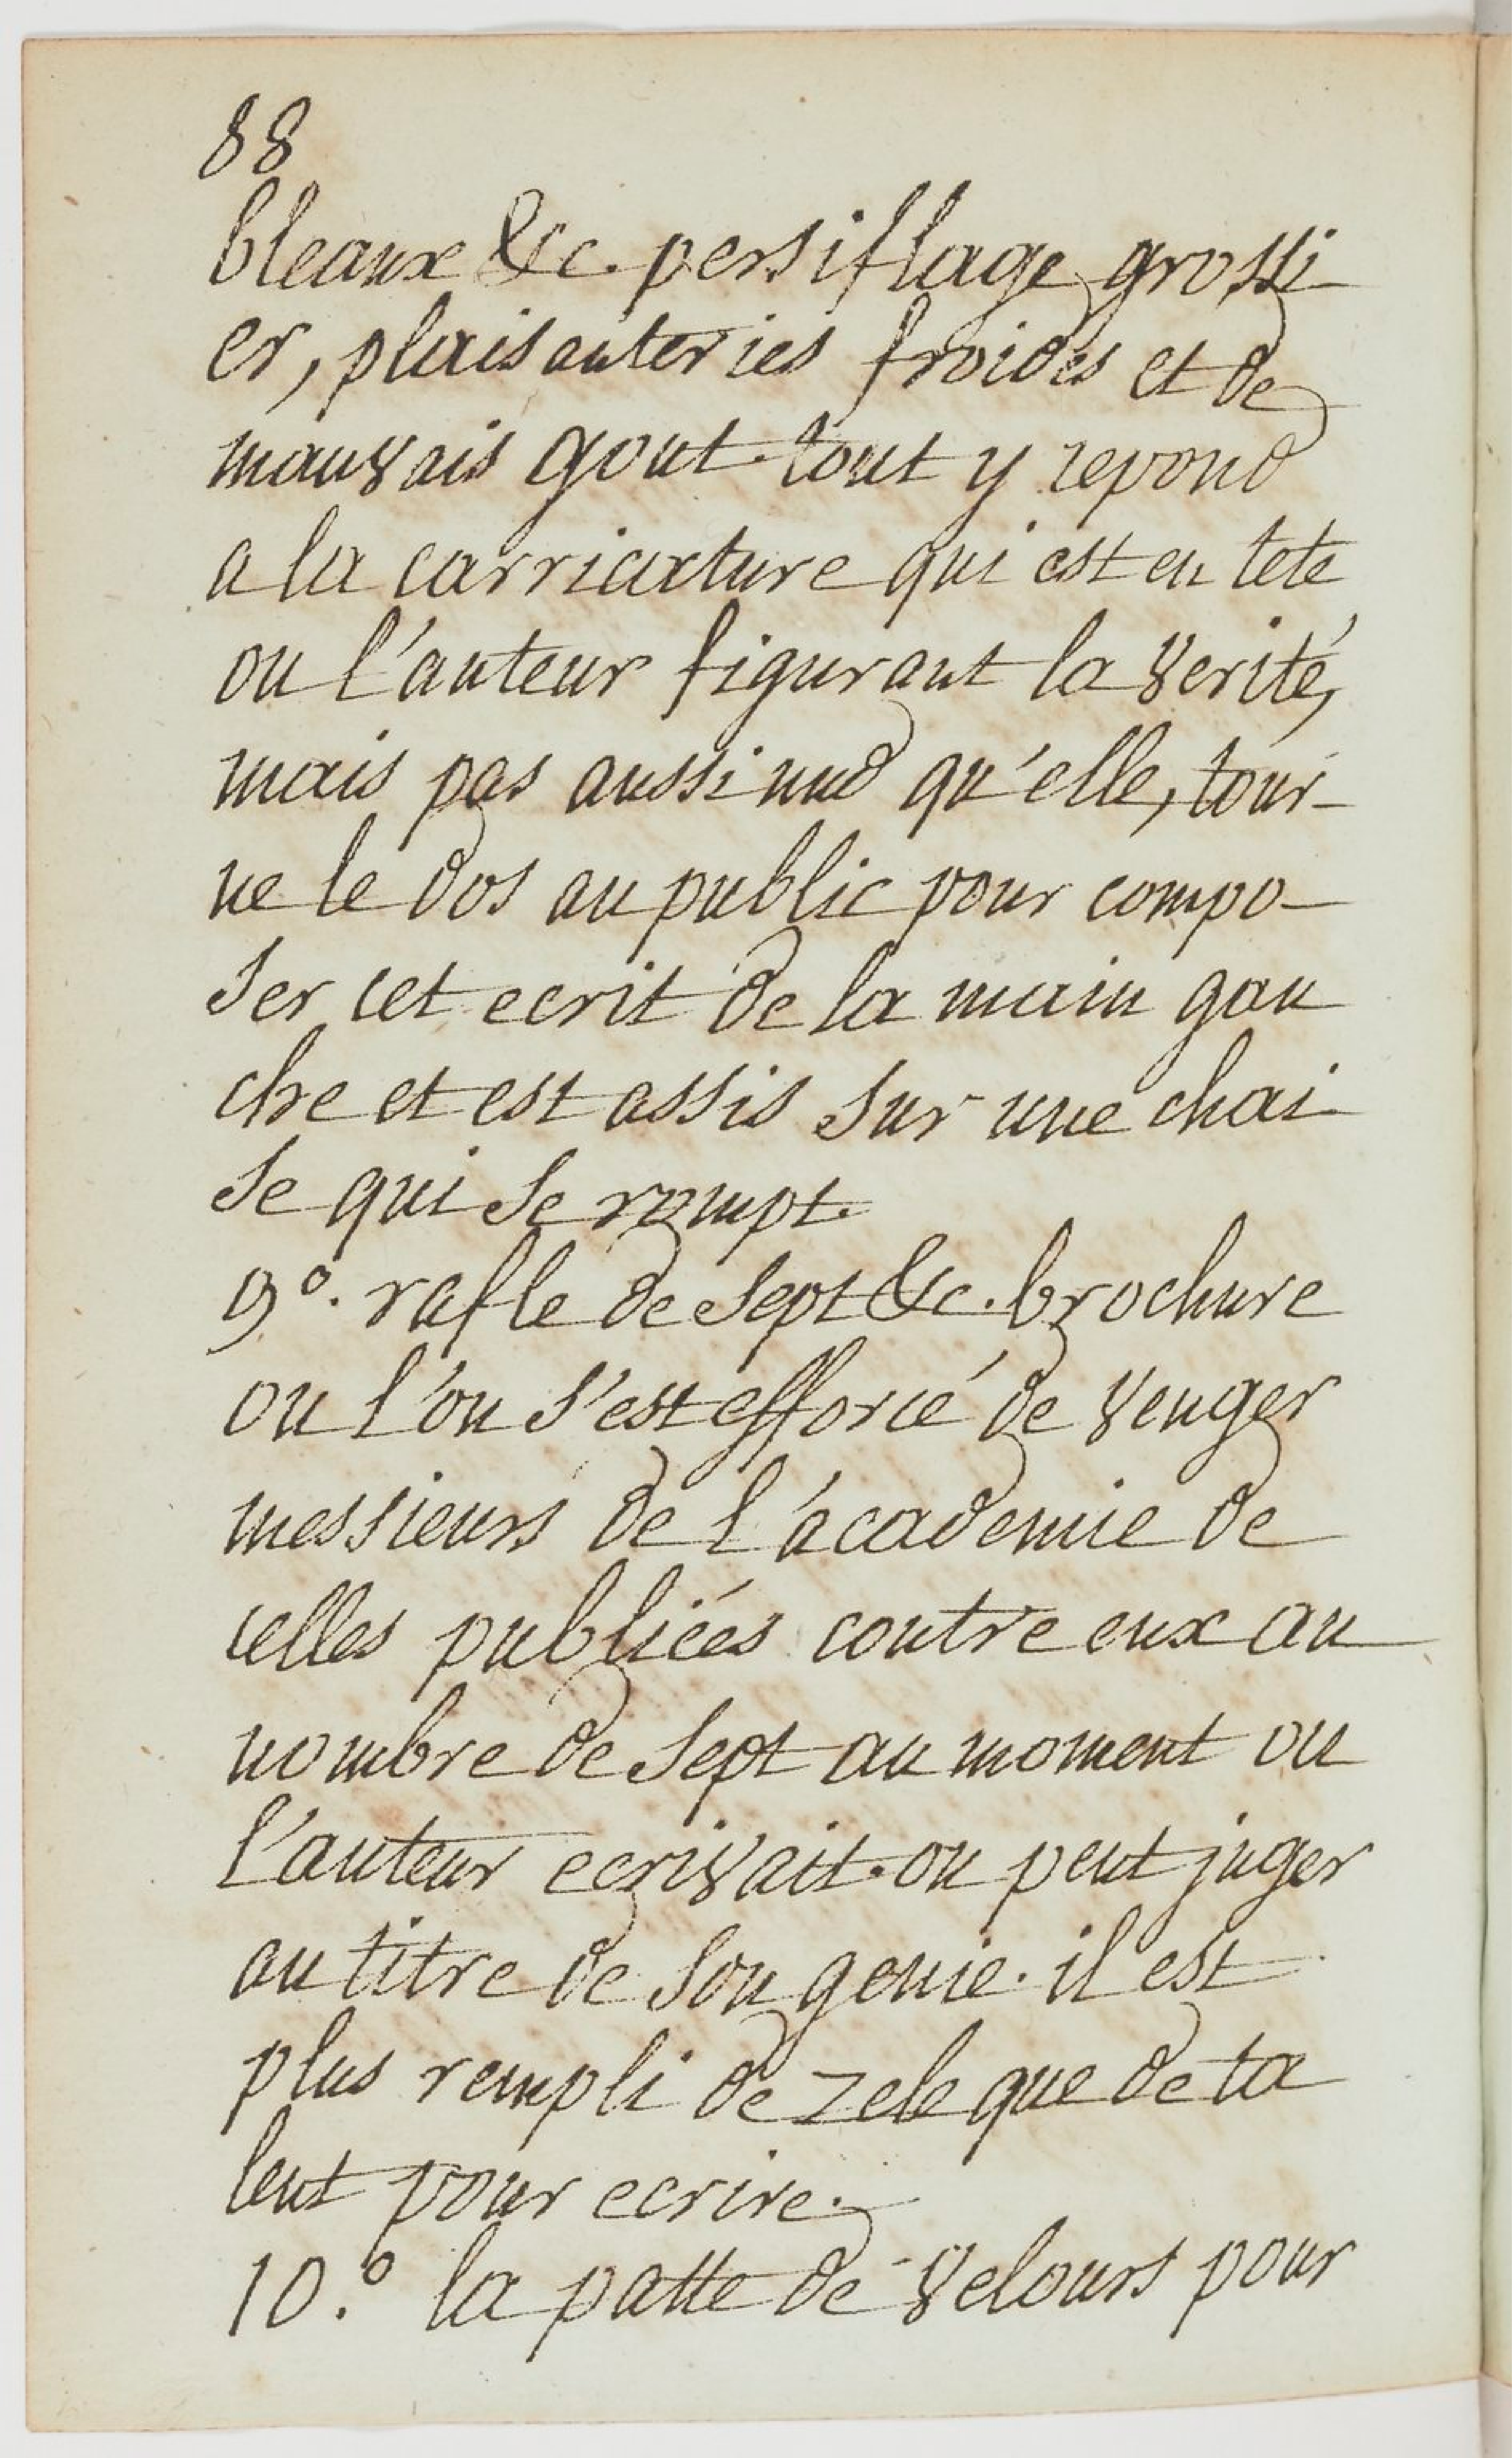 88
bleaux &c. persiflage grossi
er, plaisanteries froides et de
mauvais gout. tout y repond
a la carricature qui est en tete
ou l'auteur figurant la verité,
mais pas aussi nud qu'elle, tour-
ne le dos au public pour compo-
ser cet ecrit de la main gau
che et est assis sur une chai
se qui se rompt.
9°. rafle de sept &c. brochure
ou l'on s'est efforcé de venger
messieurs de l'academie de
celles publiées contre eux au
nombre de sept au moment ou
l'auteur ecrivait. on peut juger
au titre de son genie. il est
plus rempli de zele que de ta
lent pour ecrire.
10.° la patte de velours pour